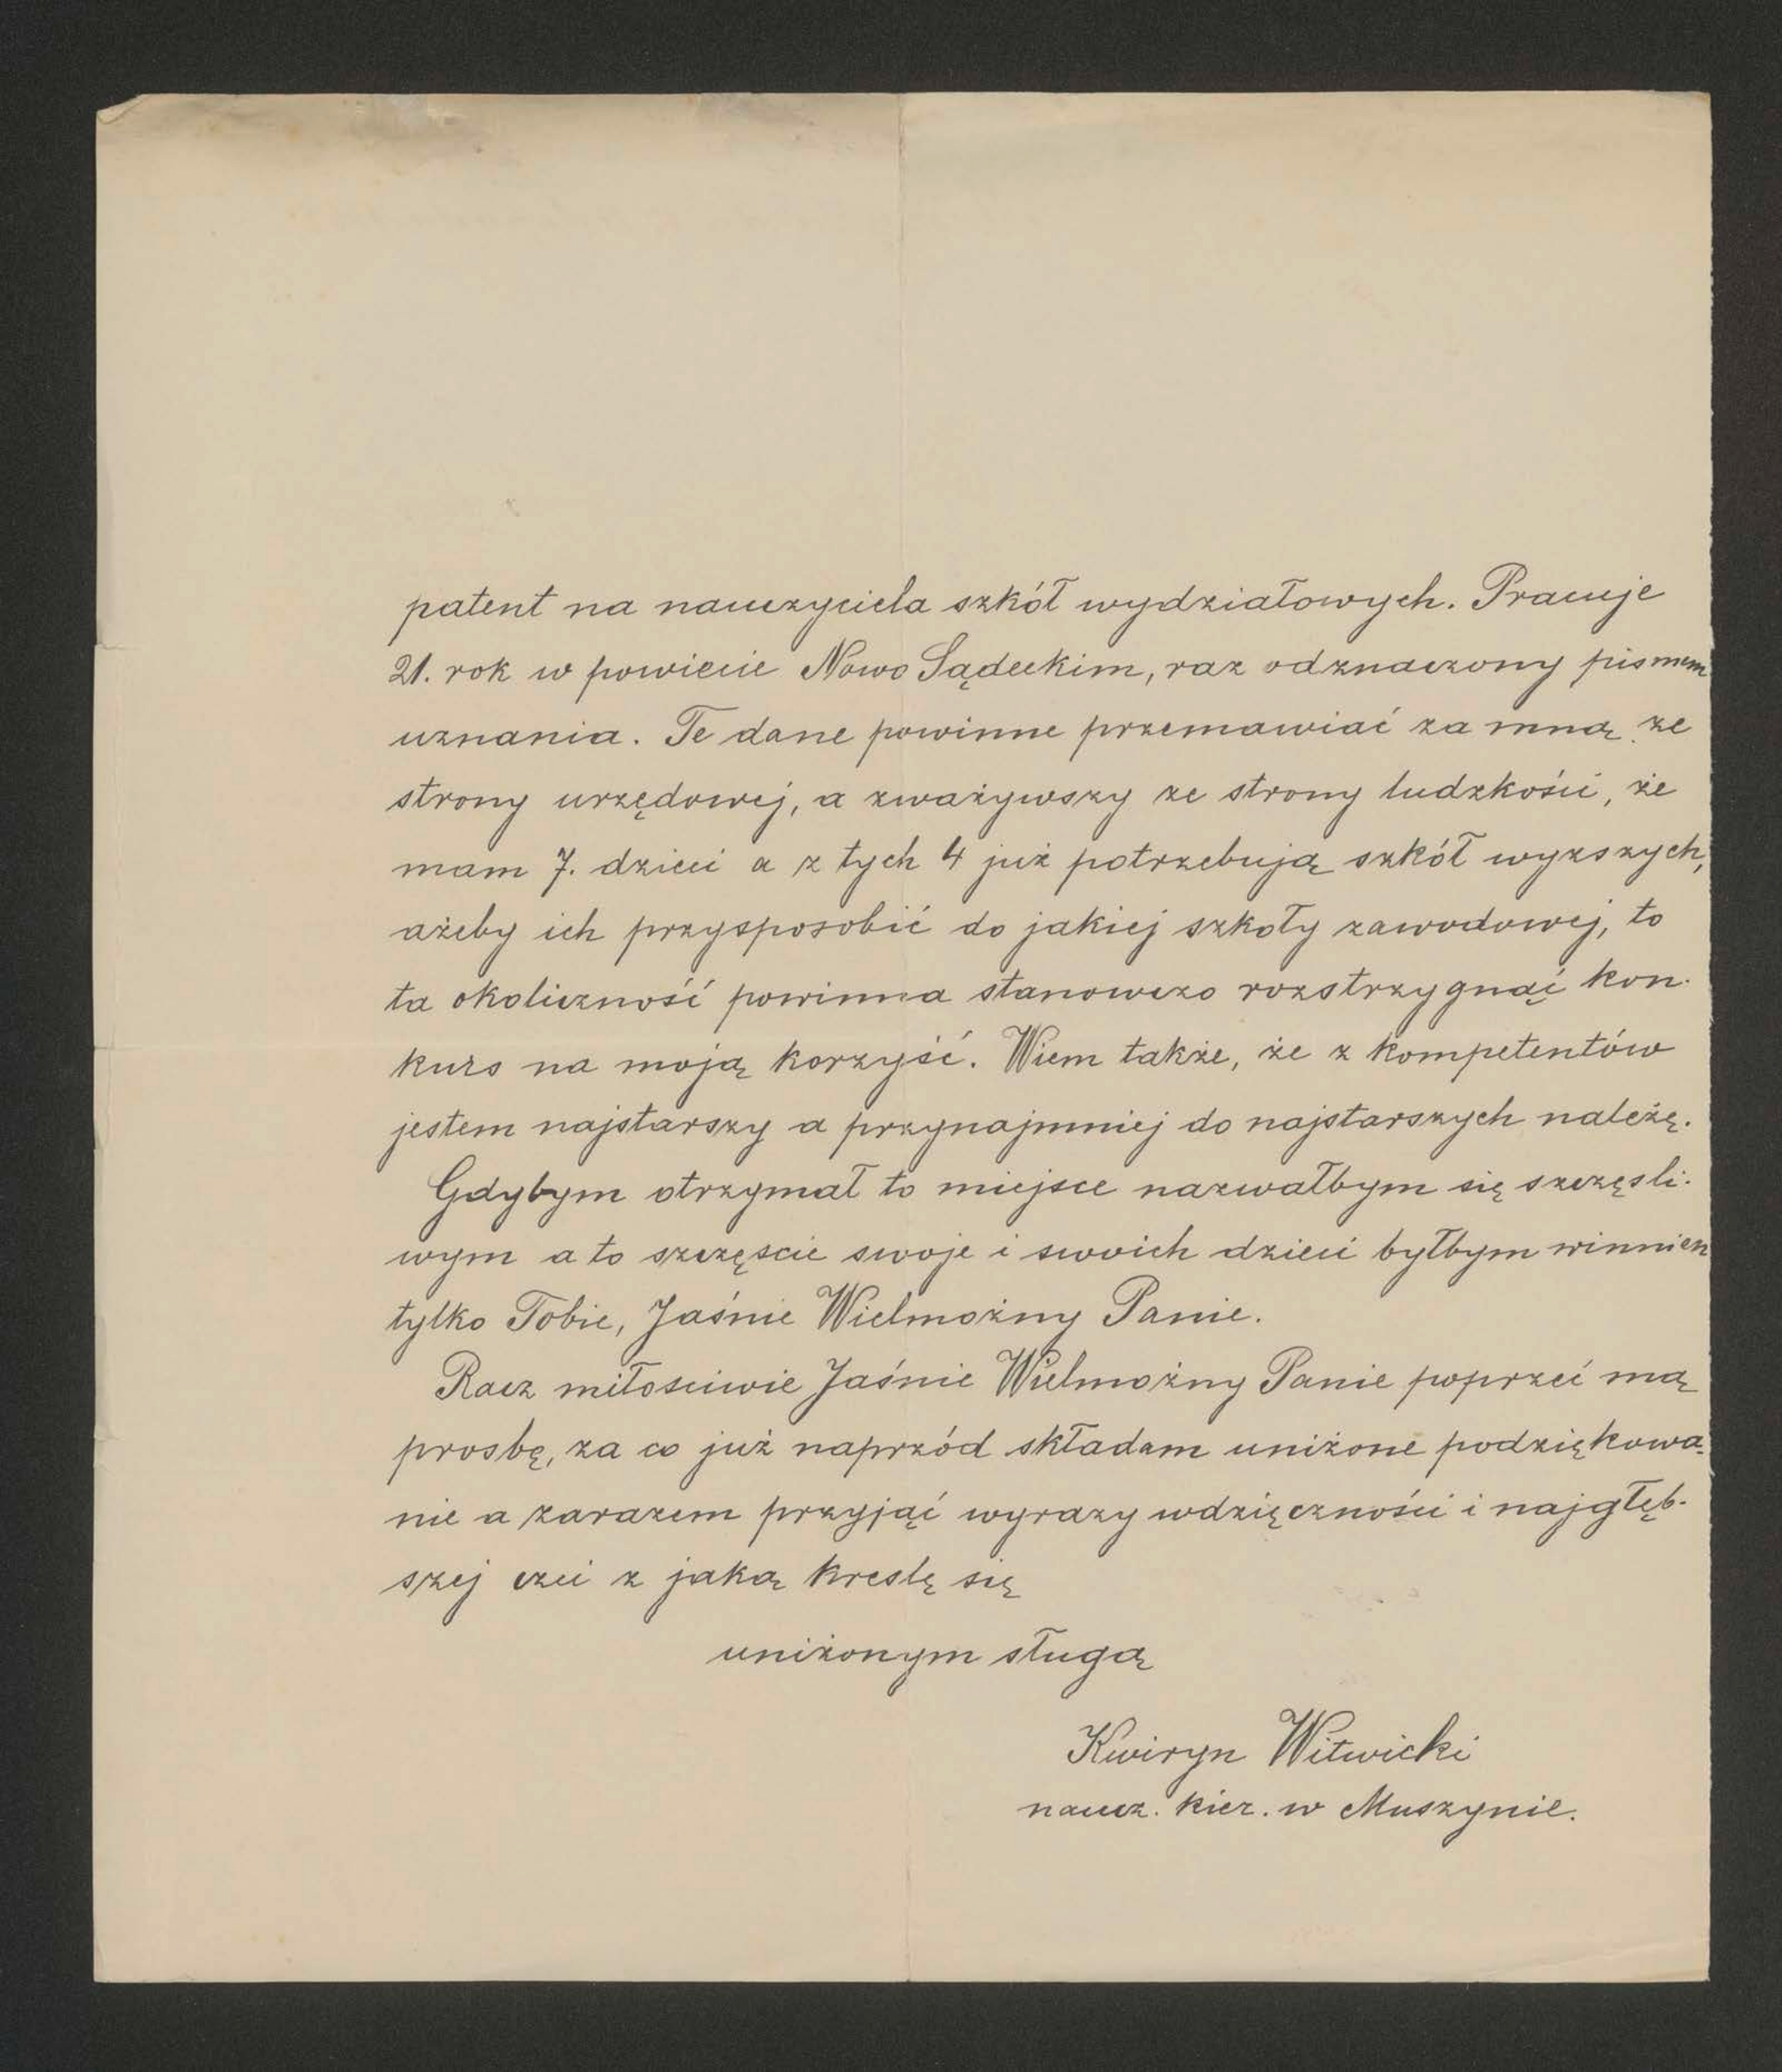 patent na nauczyciela szkół wydziałowych. Pracuje
21. rok w powiecie Nowo Sądeckim, raz odznaczony pismem
uznania. Te dane powinne przemawiać za mną ze
strony urzędowej, a zważywszy ze strony ludzkości, że
mam 7. dzieci a z tych 4 już potrzebują szkół wyzszych,
ażeby ich przysposobić do jakiej szkoły zawodowej, to
ta okoliczność powinna stanowczo rozstrzygnąć kon-
kurs na moją korzyść. Wiem także, że z kompetentów
jestem najstarszy a przynajmniej do najstarszych należę.
Gdybym otrzymał to miejsce nazwałbym się szczęsli-
wym a to szczęscie swoje i swoich dzieci byłbym winnien
tylko Tobie, Jaśnie Wielmożny Panie.
Racz miłosciwie Jaśnie Wielmożny Panie poprzeć mą
prosbę, za co już naprzód składam uniżone podziękowa-
nie a zarazem przyjąć wyrazy wdzięczności i najgłęb-
szej czci z jaką kreslę się
uniżonym sługą
Kwiryn Witwicki
naucz. kier. w Muszynie.